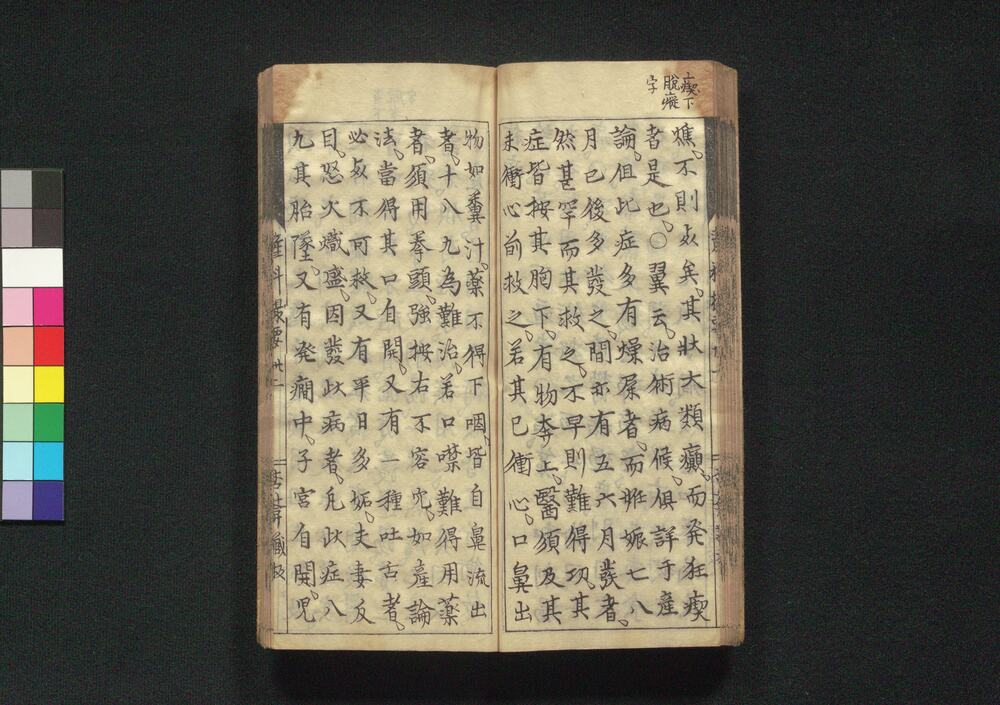 上瘈下
脫瘲
字
瘲。不則死矣。其狀大類癲。而発狂瘈
者是也。○翼云。治術病候。俱詳于産
論。但此症多有燥屎者。而妊娠七八
月已後多發之。間亦有五六月發者。
然甚罕而其救之。不早則難得功。其
症皆按其胸下。有物夲上。醫須及其
未衝心前救之。若其已衝心。口鼻出
物如糞汁。薬不得下咽。皆自鼻流出
者。十八九為難治。若口噤難得用薬
者。須用拳頭。強按右不容穴。如産論
法。當得其口自開。又有一種吐舌者。
必死不可救。又有平日多妬。夫妻反
目。怒火熾盛。因發此病者。凡此症八
九其胎墜。又有発癇中。子宮自開。児
産科發要 卅二